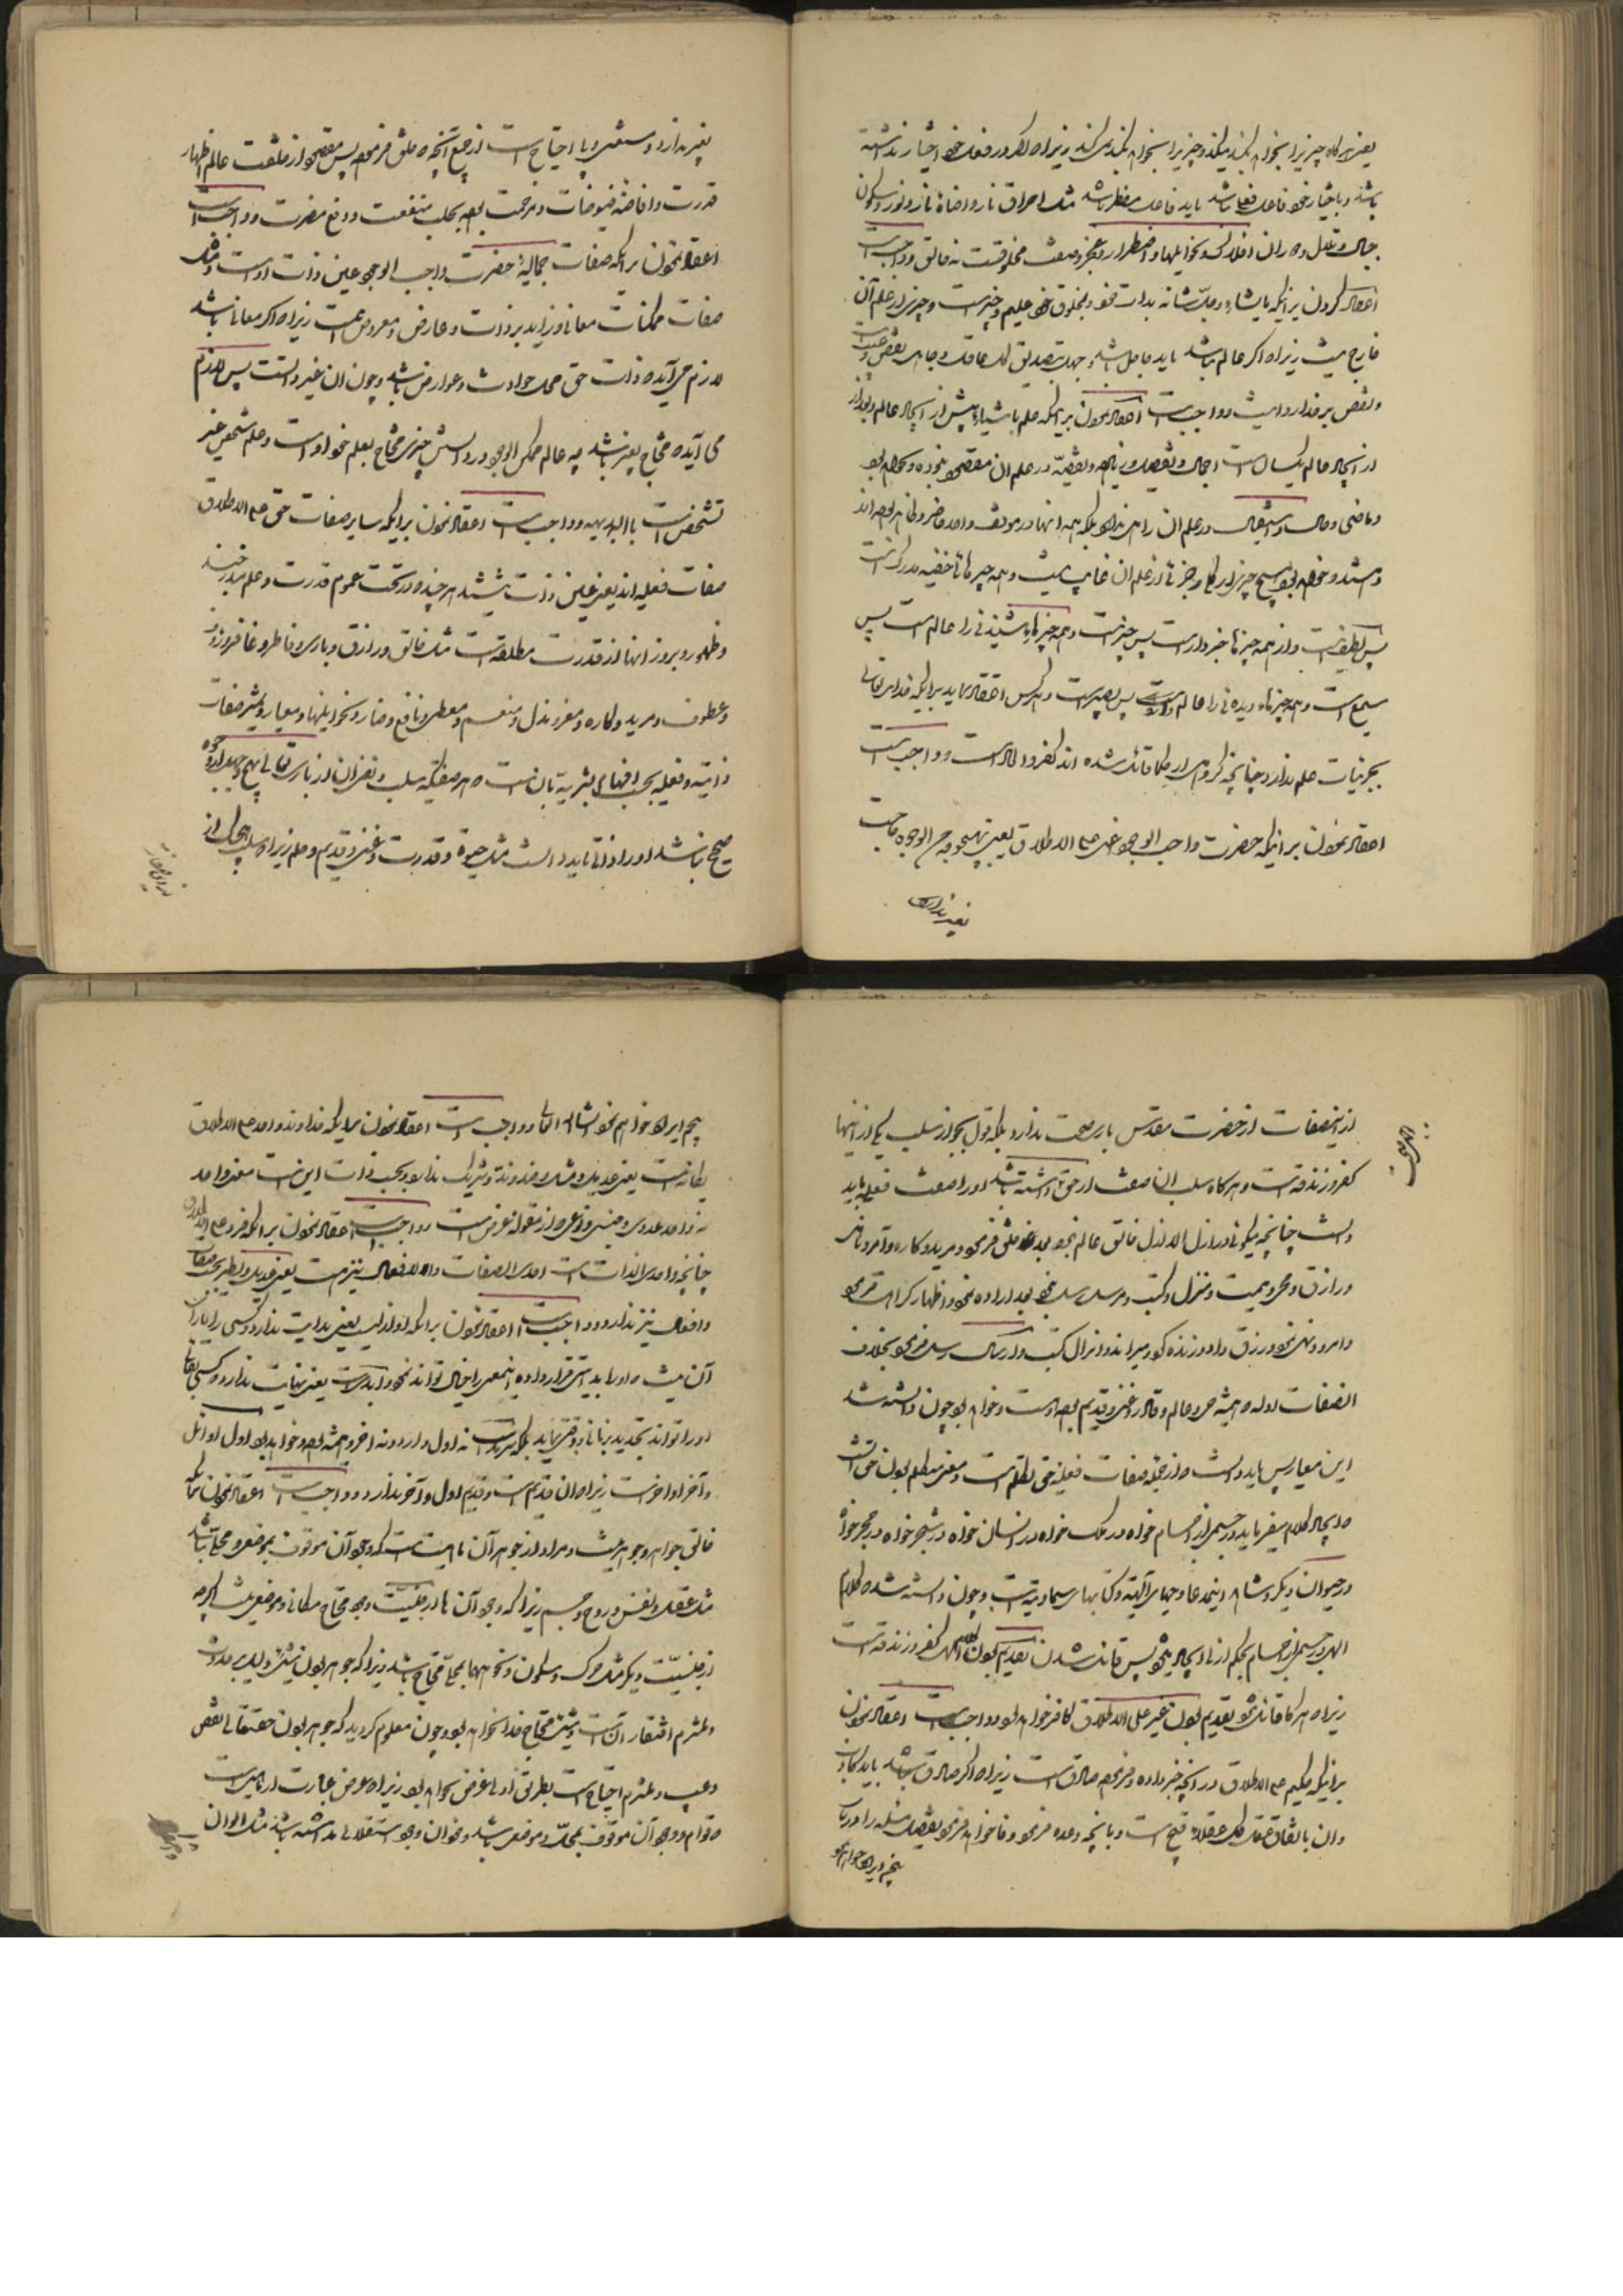 یعنی هر کاه چیزیرا بخواهد بکند میکند و چیزیرا نخواهد بکند نمی کند زیرا که اگر در فعل خود اختیار نداشته
باشد و باختیار خود فاعل فعلی نباشد باید فاعل مضطر باشد مثل احراق نار و اضائهٔ نار و نور و سکون
جبال و تلال و دوران افلاک و نحو اینها و اضطرار و عجز صفت مخلوقست نه خالق و واجبست
اعتقاد کردن برانیکه بایشاء و جلّ شانه بذات خود و بمخلوق خود علیم و خبیر است و چیزی از علم آن
خارج نیست زیرا که اگر عالم نباشد باید جاهل باشد و جهل بتصدیق کل عاقل و جاهل نقص و عیب است
و نقص بر خدا روا نیست و واجبست اعتقاد نمودن بر اینکه علم باشیاء پیش از ایجاد عالم و بعد از
از ایجاد عالم یکسان است اجمال و تفصیل و زیاده و نقیصه در علم ان مقصود نبوده و نخواهد بود
و ماضی و حال و استقبال در علم ان راهی ندارد بلکه همه انها در موقف واحد حاضر و ظاهر بوده اند
و هستند و خواهد بود هیچ چیزی از کلی و جزئی از علم ان غایب نیست و همه چیزهای خفیه مدرک است
پس لطیف است و از همه چیزها خبر دار است پس خبیر است و همه چیزهای شنیدنی را عالم است پس
سمیع است و همه چیزهای دیدنی را عالم است پس بصیر است و هر کس اعتقاد نماید بر اینکه خدای تعالی
بجزئیات علم ندارد چنانچه گروهی از حکما قائل شده اند کفر و الحاد است و واجب است
اعتقاد نمودن برانیکه حضرت واجب الوجود غنی علی الاطلاق یعنی بهیچوجه من الوجوه حاجت
بغیر ندارد
بغیر ندارد و مستغنی و بی احتیاج است از جمیع آنچه که خلق فرموده پس مقصود از خلقت عالم اظهار
قدرت و افاضهٔ فیوضات و مرحمت بوده نه جلب منفعت و دفع مضرت و واجب است
اعتقاد نمودن برانکه صفات جمالیهٔ حضرت واجب الوجود عین ذات اوست و مثل
صفات ممکنات معانی زاید بر ذات و عارض و معروض نیست زیرا که اگر معانی باشد
لازم می آید که ذات حق محل حوادث و عوارض باشد و چون ان غیر ذاتست پس لازم
می آید که محتاج بغیر باشد چه عالم ممکن الوجود در دانستن چیزی محتاج بعلم خود اوست و علم شخص غیر
تشخص است بالبدیهه و واجب است اعتقاد نمودن برانیکه سایر صفات حق علی الاطلاق
صفات فعلیه اند یعنی عین ذات نیستند هر چند که در تحت عموم قدرت و علم مندرجند
و ظهور و بروز انها از قدرت مطلقه است مثل خالق و رازق و باری و فاطر و غافر و رؤف
و عطوف و مرید و کاره و معز و مذل و منعم و معطی و نافع و ضار و نحو اینها و معیار و تمییز صفات
ذاتیه و فعلیه بحسب افهام بشریه بان است که هر صفتیکه سلب و نفی ان از باری تعالی بهیچ وجه من الوجوه
صحیح نباشد او را ذاتی باید دانست مثل حیوة و قدرت و غنی و قدیم و علم زیرا که سلب هر یک از
از این صفات از حضرت مقدس باری صحت ندارد بلکه قول بجواز سلب یکی از اینها
کفر و زندقه است و هر کاه سلب ان صفت از حق تعالی داشته باشد او را صفت فعلیه باید
دانست چنانچه میکوئی در ازل الازل خالق عالم نبود بعد خلق فرمود و مرید و کاره و آمر و ناهی
و رازق و محیی و ممیت و منزل کتب و مرسل رسل نبود بعد اراده نمود و اظهار کراهت فرمود
و امر و نهی نمود و رزق داد و زنده کرد و میراند و انزال کتب و ارسال رسل فرمود بخلاف
ان صفات اوله که همیشه حی و عالم و قادر و غنی و قدیم بوده است و خواهد بود چون دانسته شد
این معیار پس باید دانست که از جمله صفات فعلیه حق تکلم است و معنی متکلم بودن حق انست
که ایجاد کلام میفرماید در جسمی از اجسام خواه در ملک خواه در انسان خواه در شجر خواه در حجر خواه
در حیوان دیگر و شاهد اینمدعا وحیهای الهیّه و کتابهای سماویّه است و چون دانسته شد که کلام
الهی در جسمی از اجسام بحکم ازلی ایجاد میشود پس قائل شدن بقدیم بودن کلام الهی کفر و زندقه است
زیرا که هر که قائل شود بقدیم بودن غیر علی الاطلاق کافر خواهد بود و واجب است اعتقاد نمودن
برانیکه حکیم علی الاطلاق در آنچه خبر داده و فرموده صادق است زیرا که اگر صادق نباشد باید کاذب
و ان باتفاق عقل کل عقلا قبیح است و بانچه وعده فرمود وفا خواهد فرمود تفصیل مسئله را در باب
پنجم ایراد خواهم نمود
پنجم ایراد خواهم نمود انشاء الله تعالی و واجب است اعتقاد نمودن برانیکه خداوند واحد علی الاطلاق
یکانه است یعنی عدیل و مثل و ضد و ند و شریک ندارد و بحسب ذات این است معنی واحد
نه واحد عددی و جنسی و نوعی که از مقوله عرض است و واجب است اعتقاد نمودن برانکه فرد علی الاطلاق
چنانچه واحدی الذات است احدی الصفات و الافعال نیز هست یعنی عدیل و نظیر بحسب صفات
و افعال نیز ندارد و واجبست اعتقاد نمودن برانکه او ازلیست یعنی بدایت ندارد و کسی را یارای
آن نیست که او را بدایتی قرار داده اینمعنی را خیال تواند نمود و ابدیست یعنی نهایت ندارد و کسی بقای
او را نتواند تحدید بزمانی و وقتی نماید بلکه سرمدیست نه اول دارد و نه اخر و همیشه بوده و خواهد بود اول اوائل
و آخر اواخر است زیرا که ان قدیم است و قدیم اول و آخر ندارد و واجب است اعتقاد نمودن برانکه
خالق جواهر و جوهر نیست و مراد از جوهر آن ماهیت است که وجود آن موقوف بموضع و محلی نباشد
مثل عقل و نفس و روح و جسم زیرا که وجود آن ها در جنسیّت وجود محتاج مکانی و موضعی نیست اگر چه
از جنسیّت دیگر مثل حرکت و سکون و نحو اینها بمحلی محتاج باشد زیرا که جوهر بودن نیستی و دلیل بر حدوث
و مستلزم افتقار انست و نیستی محتاج خدا نخواهد بود و چون معلوم کردید که جوهر بودن حقتعالی نقص
و عیب و مستلزم احتیاج است بطریق اولی عرض نخواهد بود زیرا که عرض عبارت از ماهیتست
که قوام و وجود آن موقوف بمحل و موضعی باشد و خود ان وجود استقلالی نداشته باشد مثل الوان